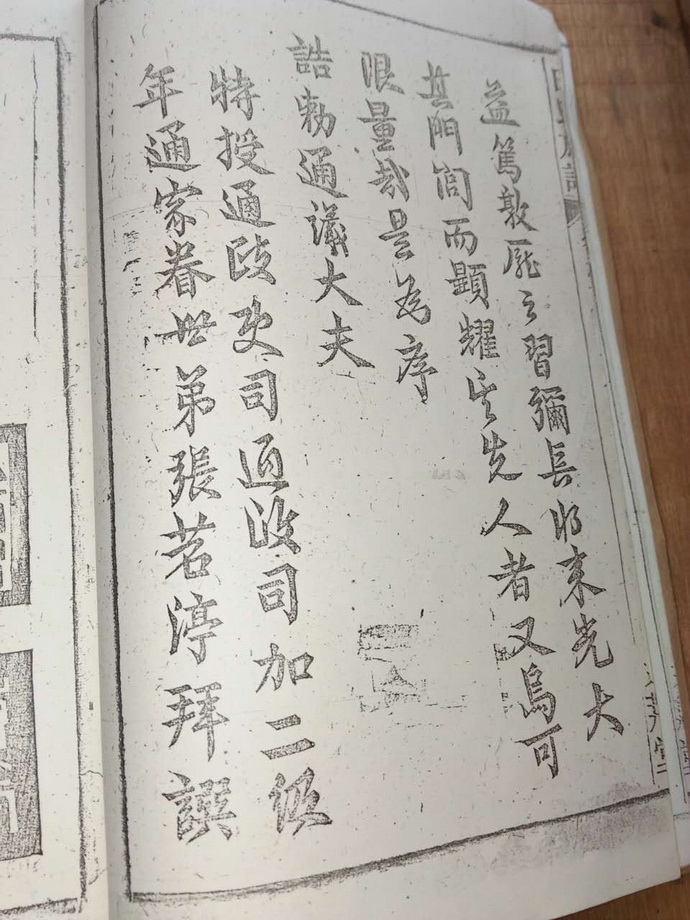 益篤敦厖之習彌長將来光大
其門閭而顯耀其先人者又烏可
限量哉是為序
誥勅通議大夫
特授通政史司通政司加二級
年通家眷世弟張茗渟拜譔